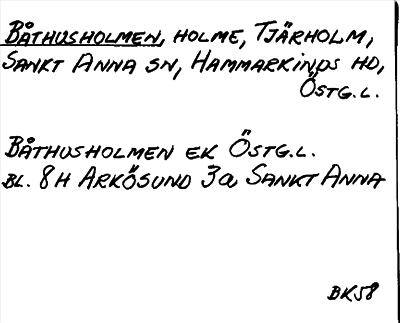 BÅTHUSHOLMEN, HOLME, TJÄRHOLM,
SANKT ANNA SN, HAMMARKINDS HD,
ÖSTG.L.
BÅTHUSHOLMEN EK ÖSTG.L.
BL. 8H ARKÖSUND 3a SANKT ANNA
BK58